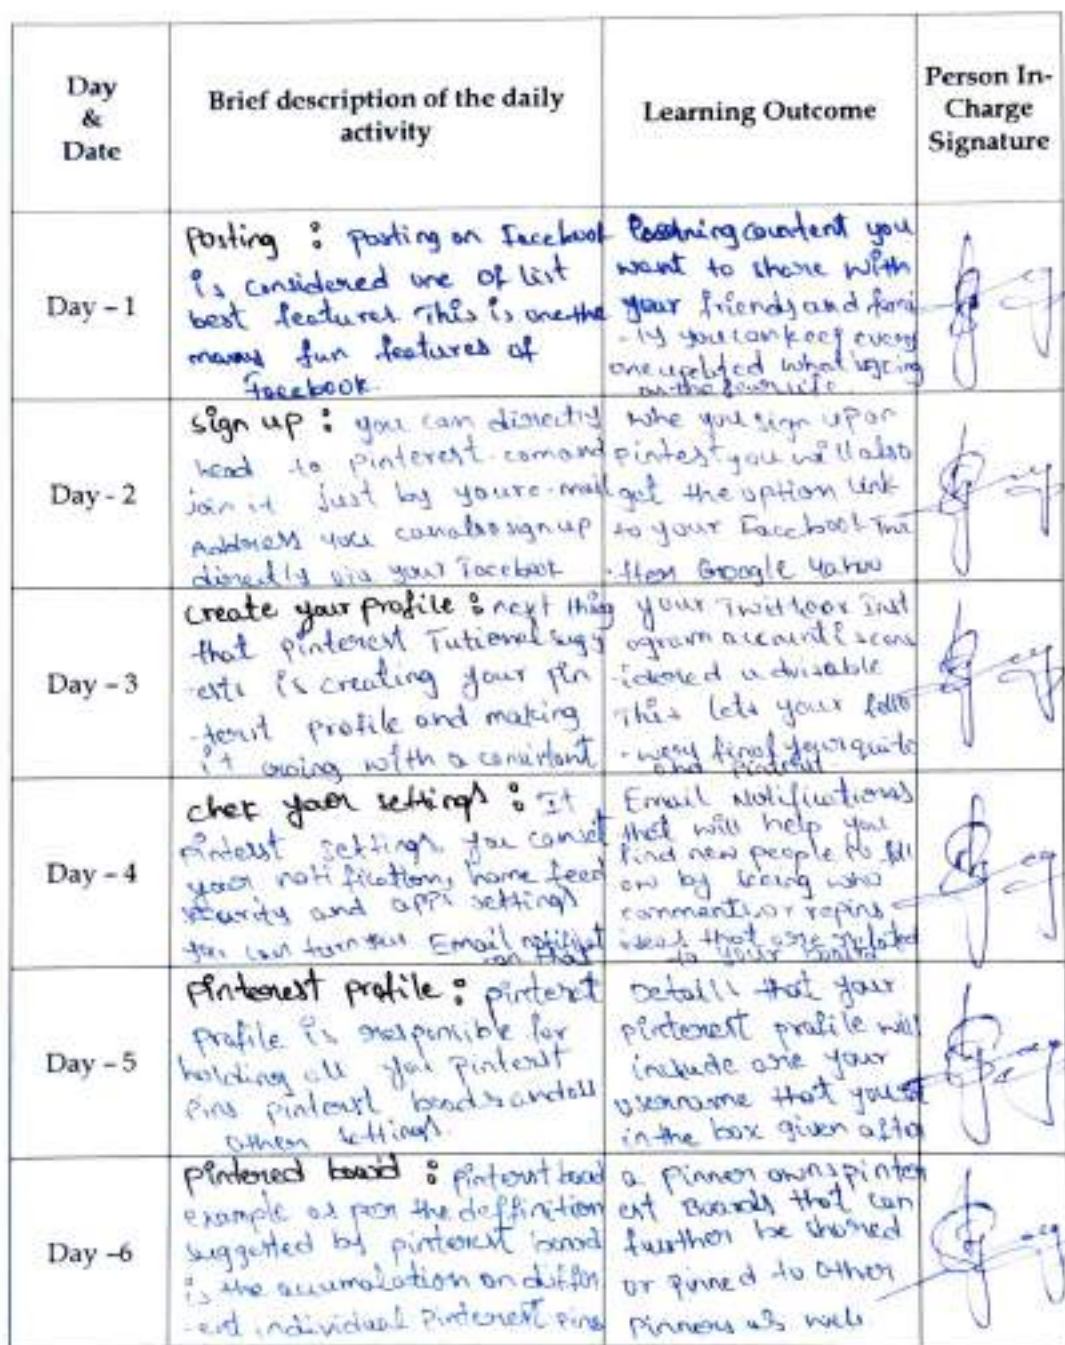 Day
&
Date
Brief description of the daily
activity
Learning Outcome
Person In-
Charge
Signature
Day - 1
Posting : Posting on Facebook
is considered one of list
best features. This is one the
many fun features of
Facebook.
content you
want to share with
your friends and fami
-ly you can keep every
one updated what
on the
Day - 2
Sign up : you can directly
head to Pinterest.com and
join it just by your e-mail
Address you can also sign up
directly via your Facebook
you sign up on
pintest you will also
get the option link
to your Facebook Twi
-tter Google Yahoo
Day - 3
create your profile : next thing
that pinterest Tutional sugg
-ests is creating your pin
-terist profile and making
it going with a consistant
your Twitter or Inst
ogram account is cons
-idered advisable
This lets your follo
-wers find your
and pinterest
Day - 4
chek your settings : It
pinterst settings, you can set
your notification, home feed
security and apps settings
you can turn your Email notificat
-ion that
Email Notifications
that will help you
find new people to foll
ow by seeing who
comments or repins
ideas that are related
to your board
Day - 5
Pinterest profile : pinteret
profile is responsible for
holding all your Pinterist
Pins pinterist boards and all
other settings.
Details that your
pinterest profile will
include are your
username that you
in the box given after
Day -6
pintered board : pinterst board
example as per the deffinition
suggested by pinterest board
is the accumalation on differ
-ent individual Pinterest Pins
a pinner owns pinter
est Boards that can
further be shared
or pinned to other
pinners as well